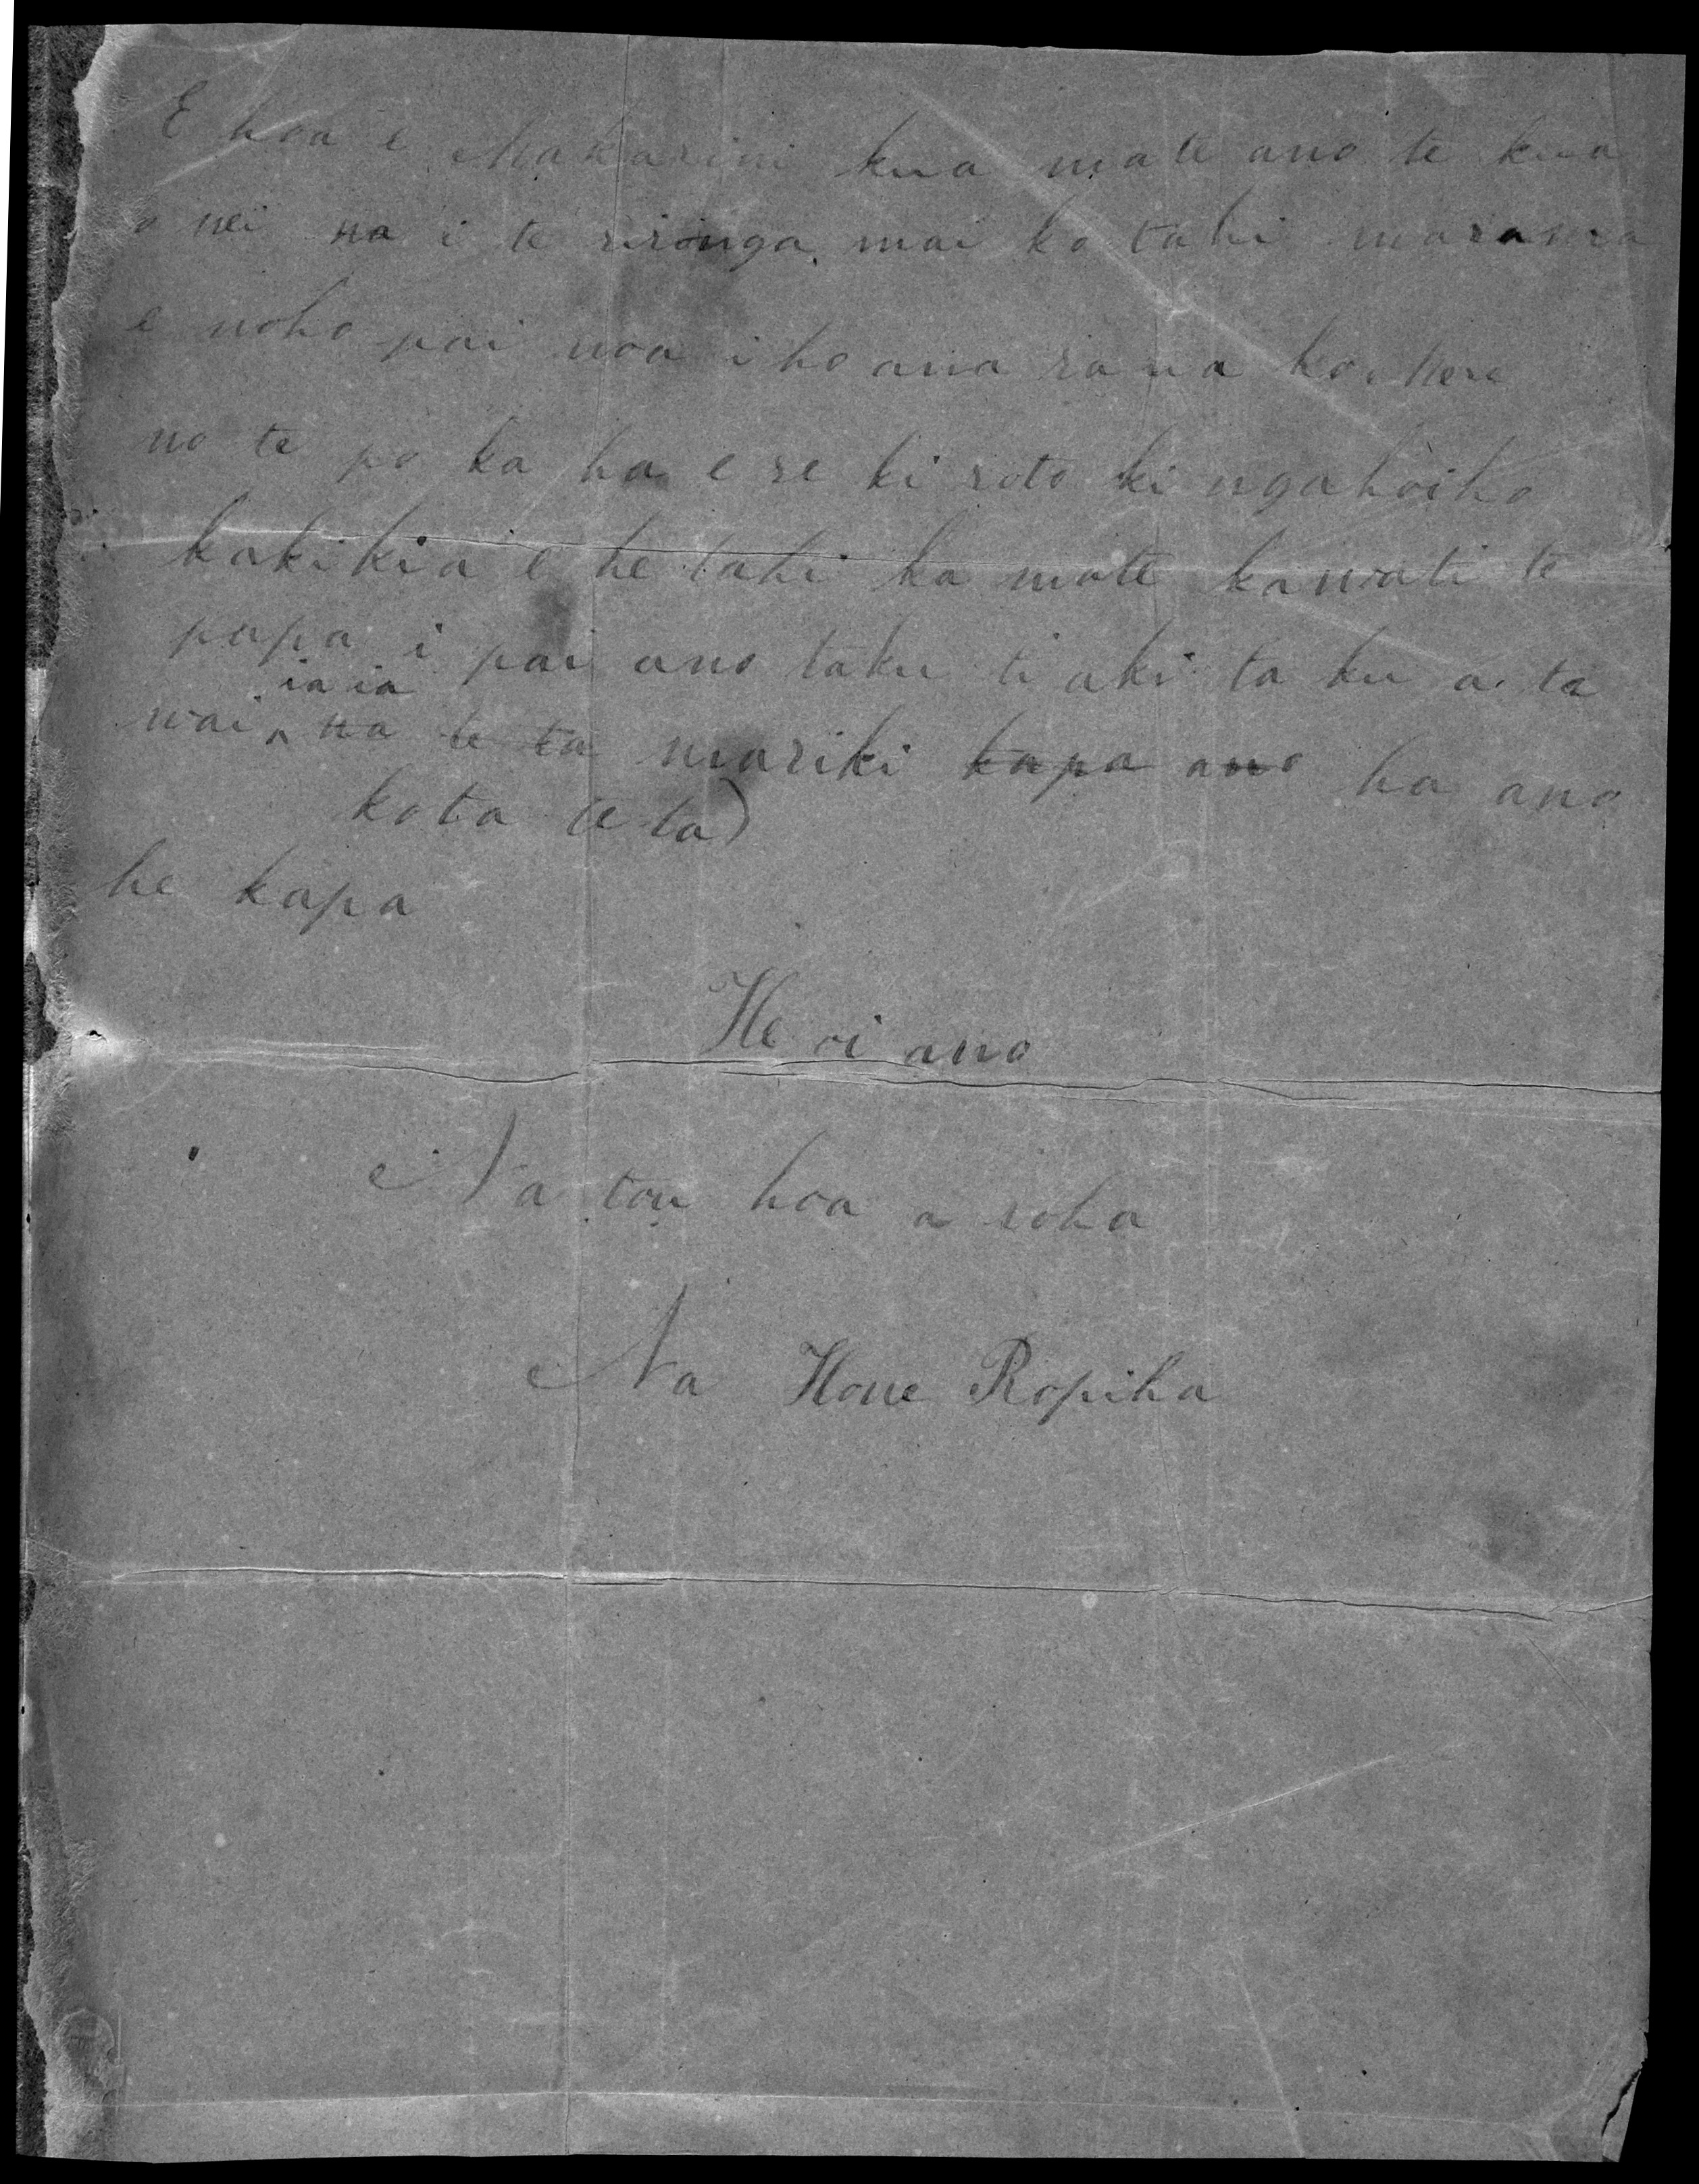 E hoa e Makarini kua mate ano te kua
o nei na i te riringa mai ko tahi marama
e noho pai noa iho ana ra ua ko Nere
no te po ka ha e re ki roto ki ngahoiho
kakikia e he tahi ka mate kawati te
papa i pai ano taku ti aki ta ku a ta
ia ia
wai na te ta mariki kapa ano ha ano
kota (e ta)
he kapa
He oi ano
Na tou hoa a roha
Na Hone Ropiha